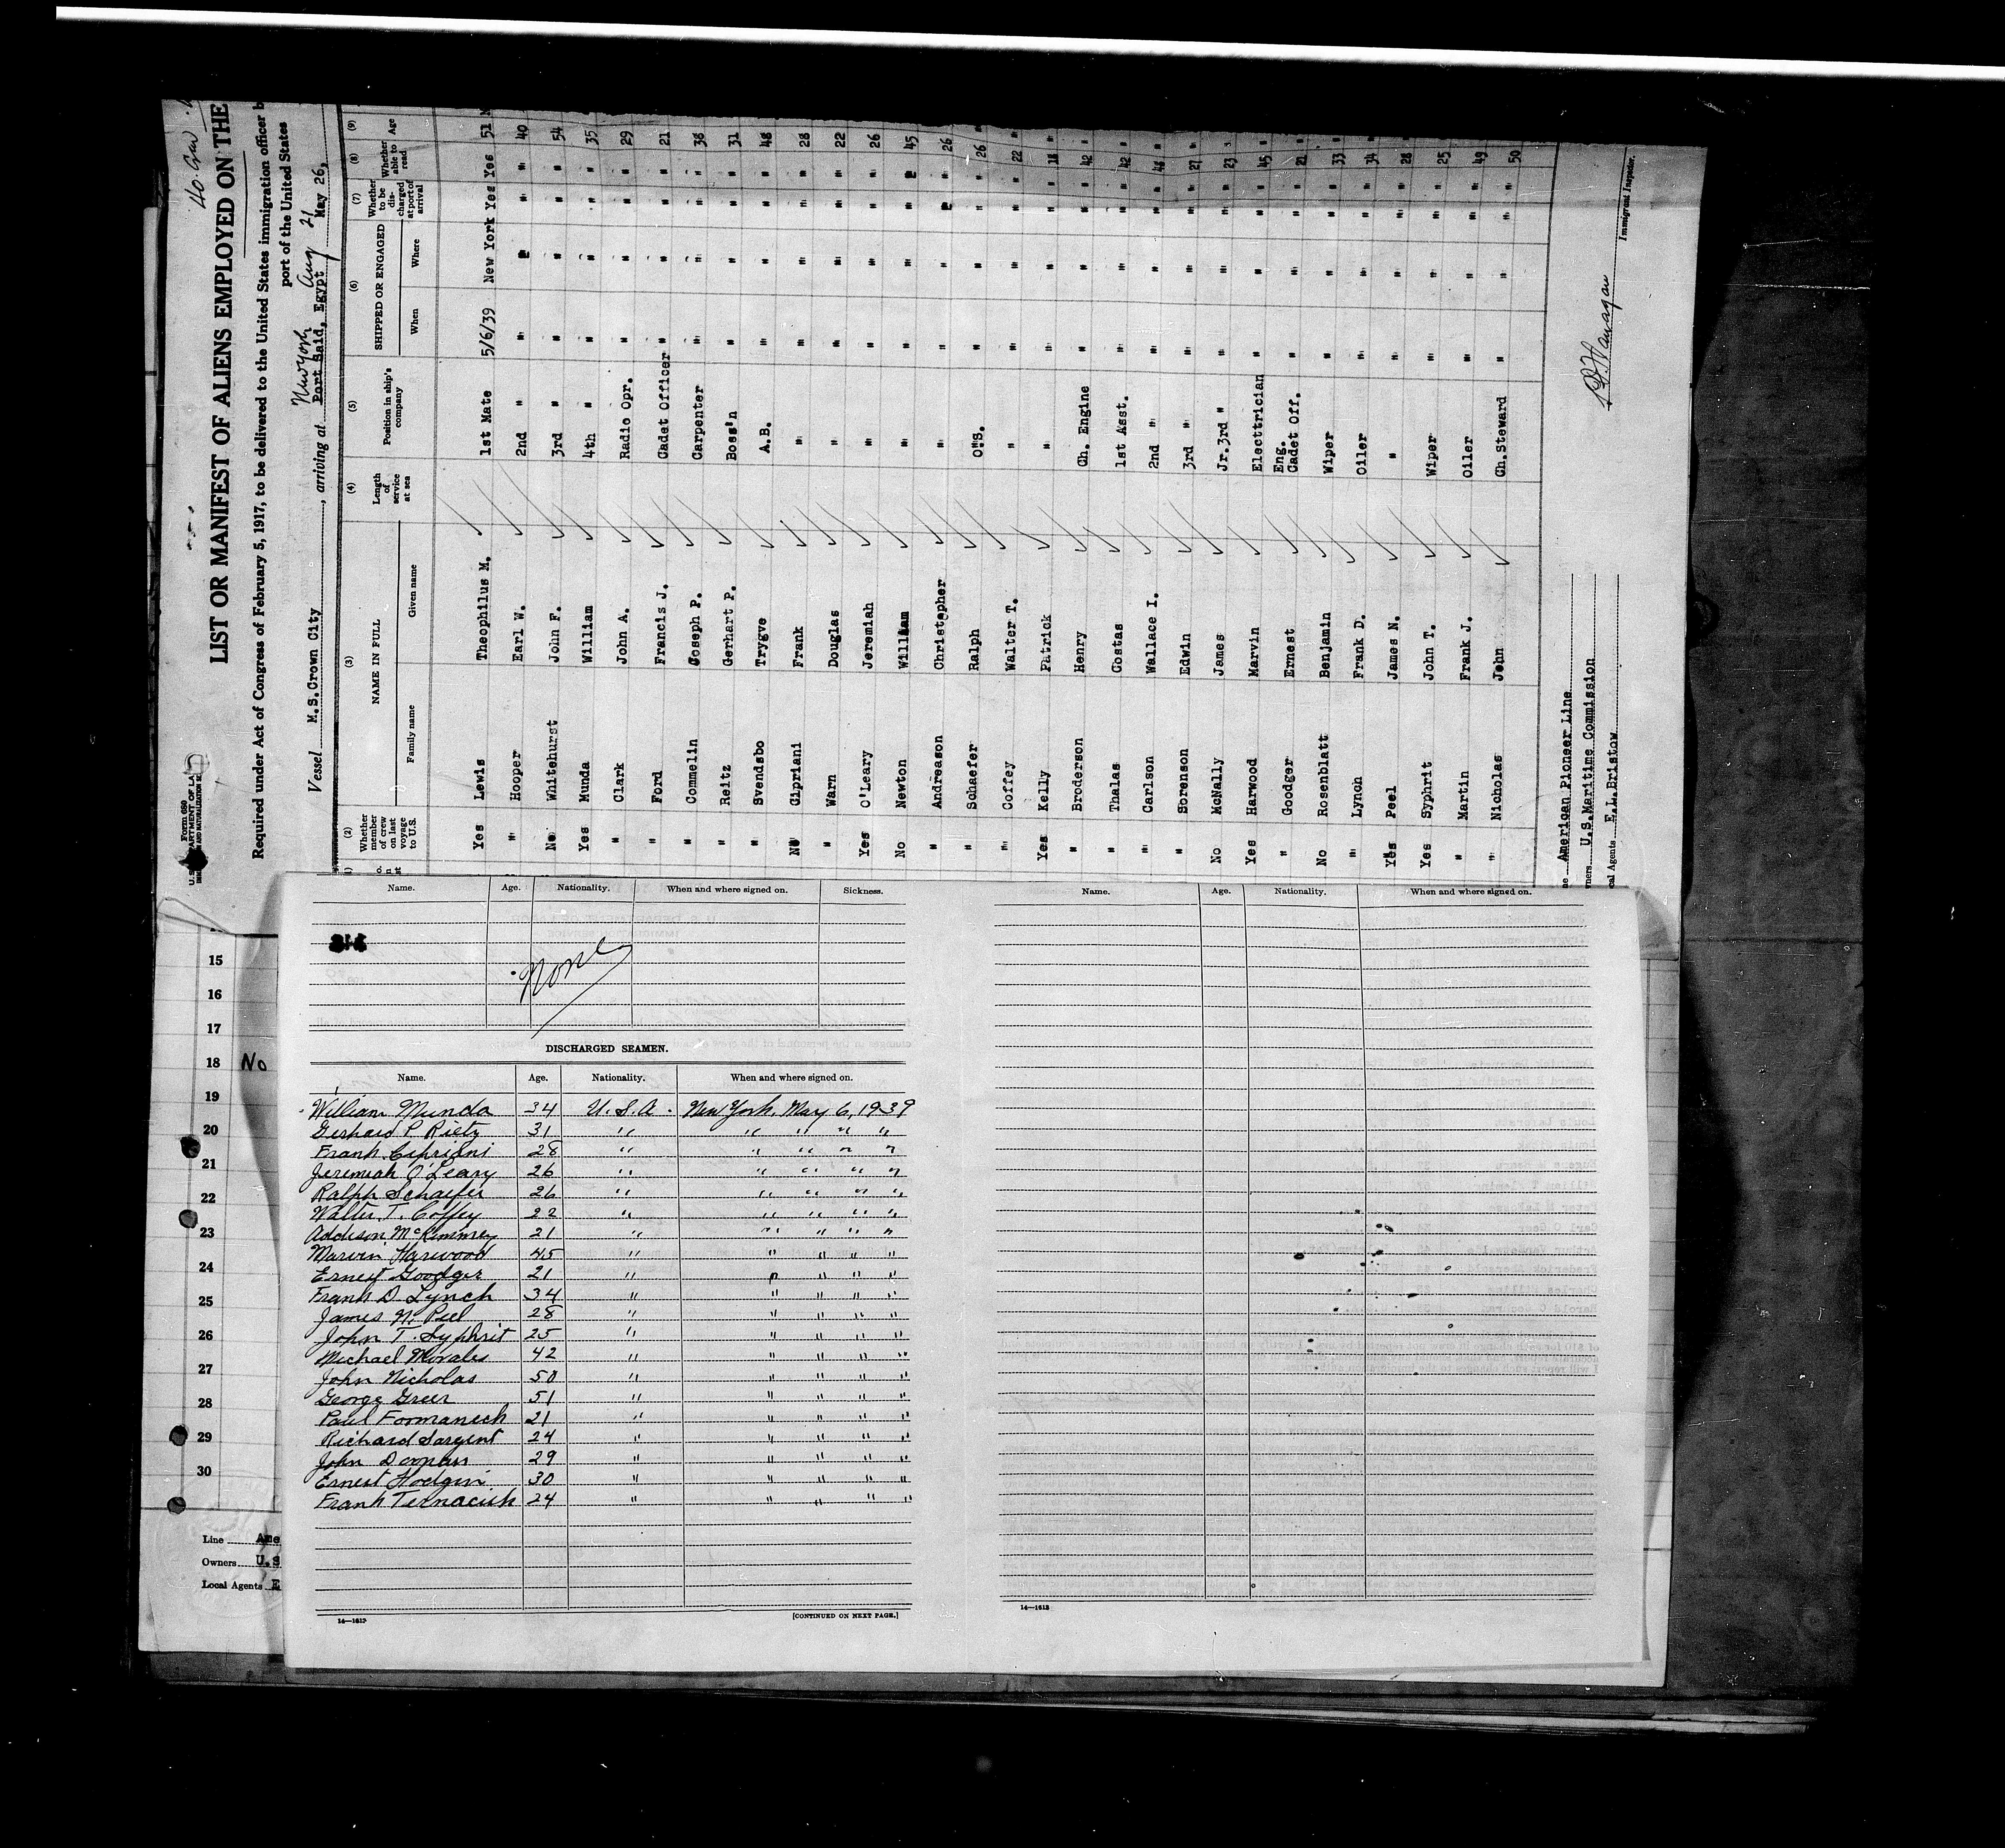 Form 680
LIST OR MANIFEST OF ALIENS EMPLOYED ON THE
Required under Act of Congress of February 5, 1917, to be delivered to the United States immigration officer b
port of the United States
Vessel M.S.Crown City, arriving at Port Said, Egypt May 26,
New York Aug 21
(2) (3) (4) (5) (6) (7) (8) (9)
Whether member of crew on last voyage to U.S. NAME IN FULL Family name Given name Length of service at sea Position in ship's company SHIPPED OR ENGAGED When Where Whether to be discharged at port of arrival Whether able to read Age
Yes Lewis Theophilus M. 1st Mate 5/6/39 New York Yes Yes 51
" Hooper Earl W. 2nd " " " " " 40
No Whitehurst John F. 3rd " " " " " 54
Yes Munda William 4th " " " " " 35
" Clark John A. Radio Opr. " " " " 29
" Ford Francis J. Cadet Officer " " " " 21
" Commelin Joseph P. Carpenter " " " " 38
" Reitz Gerhart P. Boss'n " " " " 31
" Svendsbo Trygve A.B. " " " " 48
No Cipriani Frank " " " " " 28
" Warn Douglas " " " " " 22
Yes O'Leary Jeremiah " " " " " 26
No Newton William " " " " " 45
" Andreason Christepher " " " " " 26
" Schaefer Ralph O.S. " " " " 26
" Coffey Walter T. " " " " " 22
Yes Kelly Patrick " " " " " 18
" Broderson Henry Ch. Engine " " " " 42
" Thalas Costas 1st Asst. " " " " 42
" Carlson Wallace I. 2nd " " " " " 46
" Sorenson Edwin 3rd " " " " " 27
No McNally James Jr.3rd " " " " " 23
Yes Harwood Marvin Electrician " " " " 45
" Goodger Ernest Eng. Cadet Off. " " " " 21
No Rosenblatt Benjamin Wiper " " " " 33
" Lynch Frank D. Oiler " " " " 34
Yes Peel James N. " " " " " 28
Yes Syphrit John T. Wiper " " " " 25
" Martin Frank J. Oiler " " " " 49
" Nicholas John Ch.Steward " " " " 50
American Pioneer Line
U.S.Maritime Commission
cal Agents E.L.Bristow
Immigrant Inspector.
15
16
17
18 No
19
20
21
22
23
24
25
26
27
28
29
30
Line Ame
Owners U.S
Local Agents E
Name. Age. Nationality. When and where signed on. Sickness.
None
DISCHARGED SEAMEN.
Name. Age. Nationality. When and where signed on.
William Munda 34 U.S.A. New York, May 6, 1939
Gerhard P Rietz 31 " " " " "
Frank Cipriani 28 " " " " "
Jeremiah O'Leary 26 " " " " "
Ralph Schaefer 26 " " " " "
Walter T. Coffey 22 " " " " "
Addison McKimmey 21 " " " " "
Marvin Harwood 45 " " " " "
Ernest Goodger 21 " " " " "
Frank D. Lynch 34 " " " " "
James N. Peel 28 " " " " "
John T. Syphrit 25 " " " " "
Michael Morales 42 " " " " "
John Nicholas 50 " " " " "
George Greer 51 " " " " "
Paul Formanech 21 " " " " "
Richard Sargent 24 " " " " "
John 29 " " " " "
Ernest Hodgin 30 " " " " "
Frank 24 " " " " "
14—1613
[CONTINUED ON NEXT PAGE.]
Name. Age. Nationality. When and where signed on.
14—1613